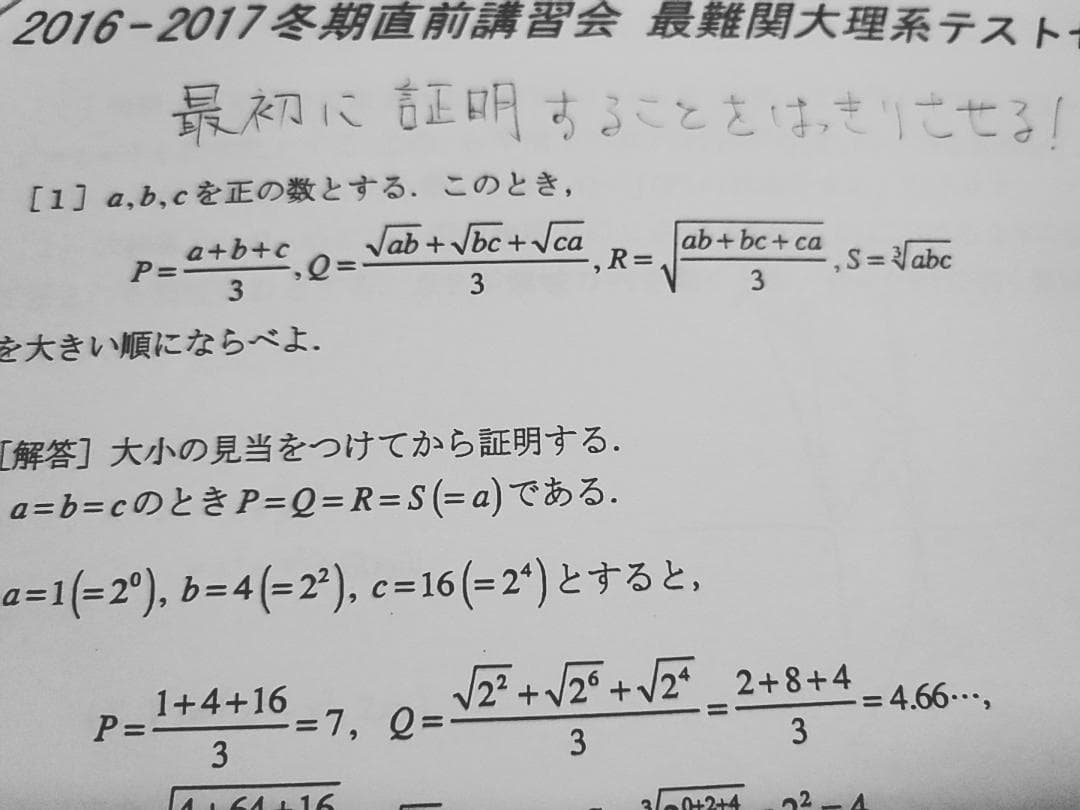 2016-2017冬期直前講習会 最難関大理系テスト
最初に証明することをはっきりさせる!
[1] a,b,cを正の数とする. このとき,
P=\frac{a+b+c}{3}, Q=\frac{\sqrt{ab}+\sqrt{bc}+\sqrt{ca}}{3}, R=\sqrt{\frac{ab+bc+ca}{3}}, S=\sqrt[3]{abc}
を大きい順にならべよ.
[解答] 大小の見当をつけてから証明する.
a=b=cのときP=Q=R=S(=a)である.
a=1(=2^0), b=4(=2^2), c=16(=2^4)とすると,
P=\frac{1+4+16}{3}=7, Q=\frac{\sqrt{2^2}+\sqrt{2^6}+\sqrt{2^4}}{3}=\frac{2+8+4}{3}=4.66…,